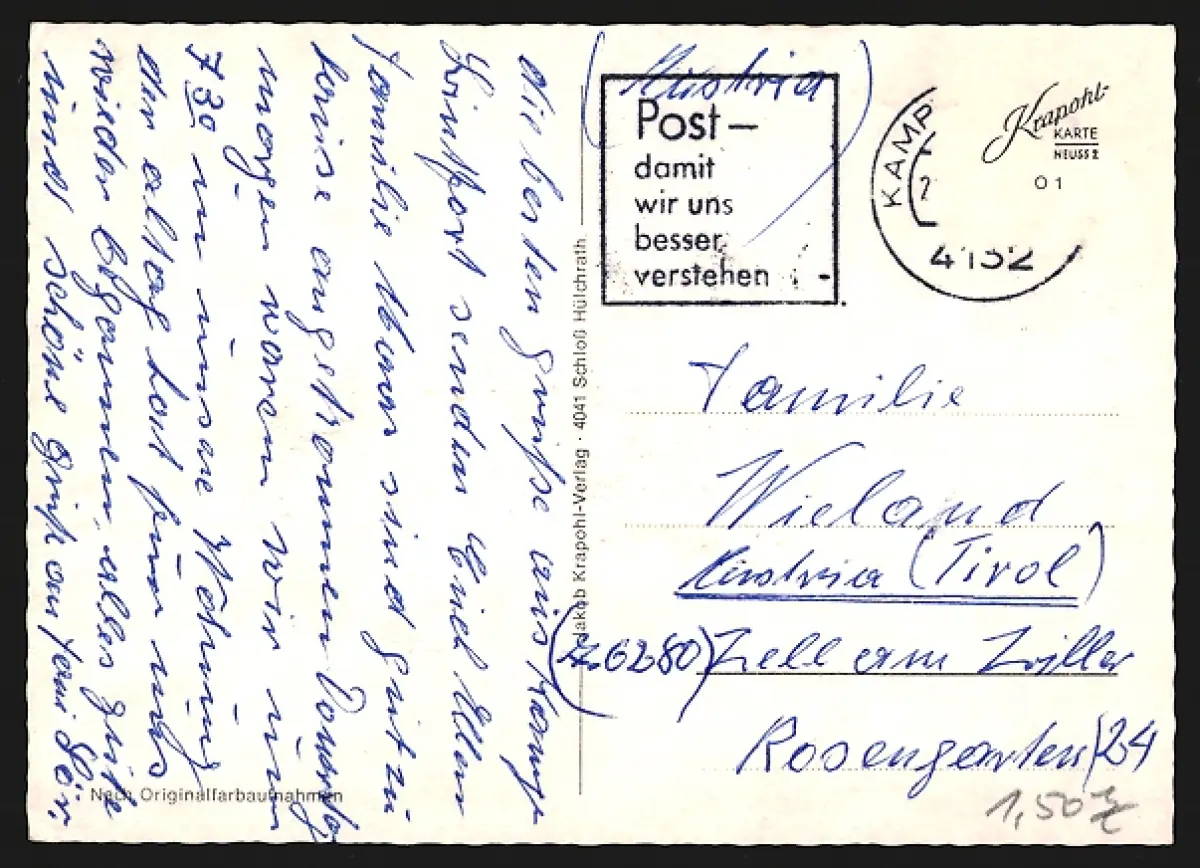 die besten Grüße aus Kamp
Lintfort senden Euch Allen
Familie sind gut zu
hause angekommen Donnerstag
morgen waren wir um
7 30 in unsare Wohnung
der altag hat für uns
wieder begonnen. alles gute
und schöne Grüße an Fam
Nach Originalfarbaufnahmen
Jakob Krapohl-Verlag · 4041 Schloß Hülchrath
(Austria)
Post –
damit
wir uns
besser
verstehen
KAMP
4132
Krapohl-
KARTE
NEUSS 2
01
Familie
Wieland
Austria (Tirol)
(A. 6280) Zell am Ziller
Rosengarten 24
1,50